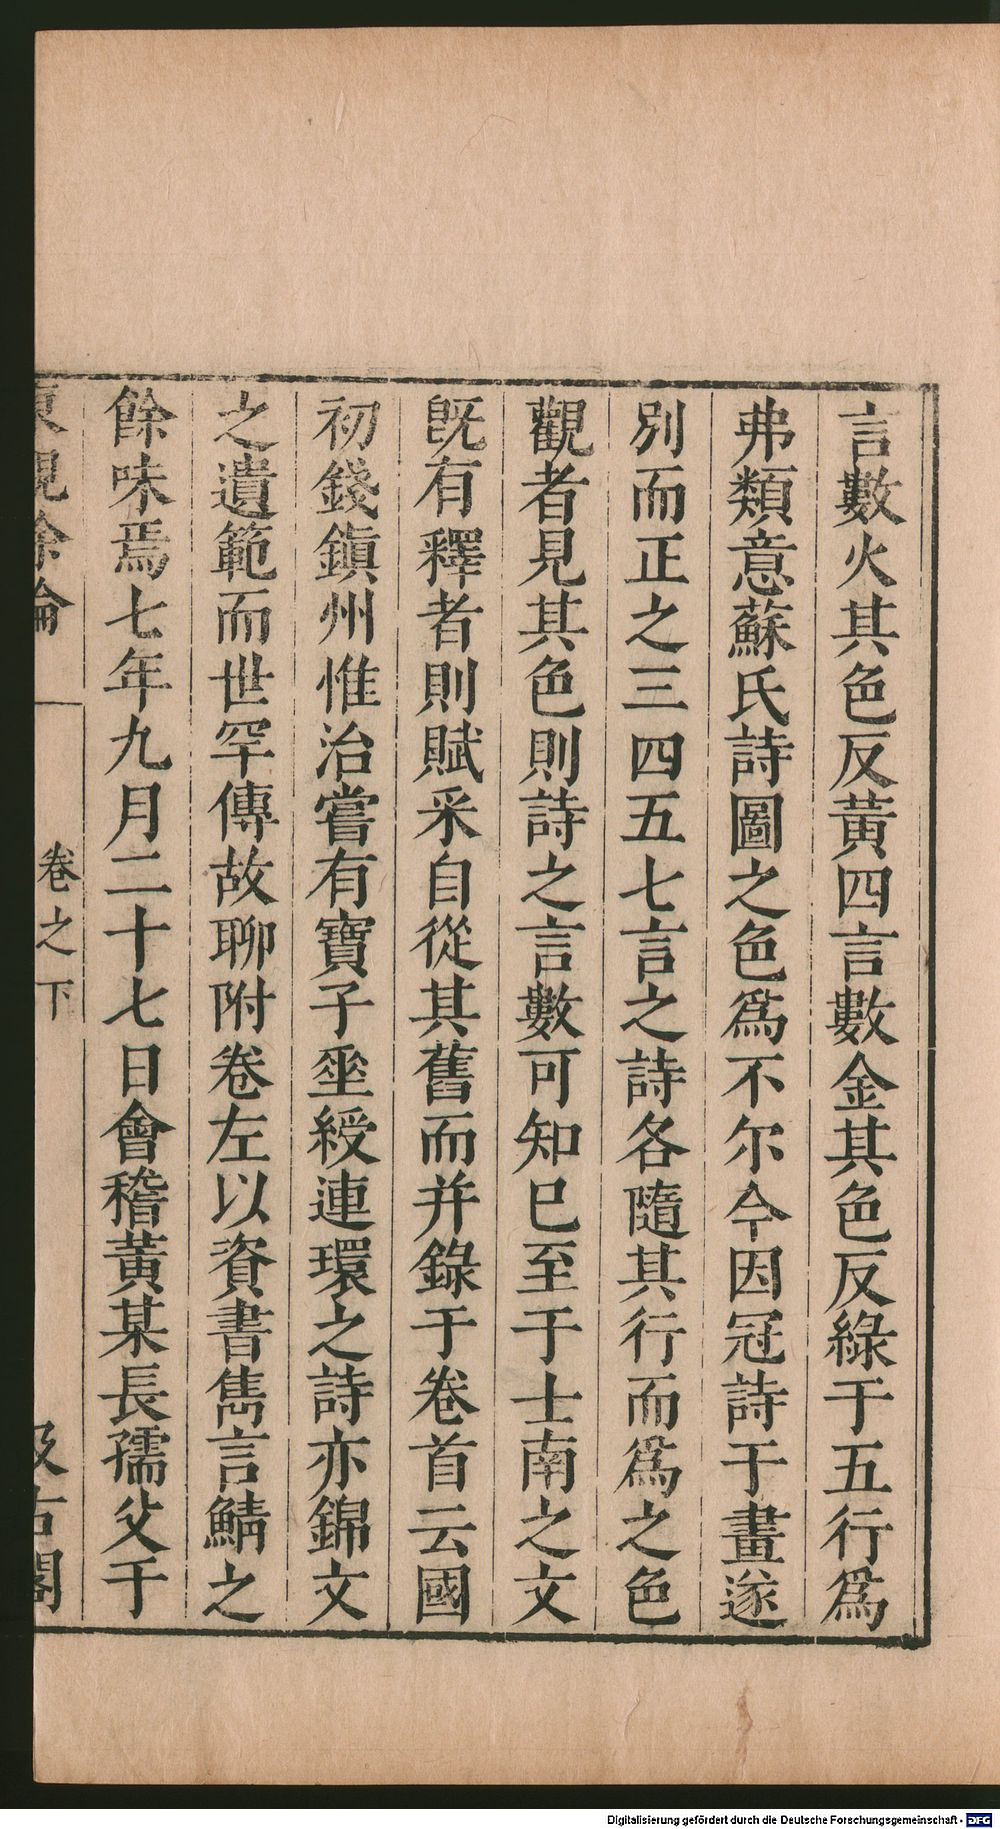 言數火其色反黃四言數金其色反綠于五行爲
弗類意蘇氏詩圖之色爲不尔今因冠詩于畫遂
別而正之三四五七言之詩各隨其行而爲之色
觀者見其色則詩之言數可知巳至于士南之文
旣有釋者則賦采自從其舊而并錄于卷首云國
初錢鎭州惟治嘗有寶子坐綬連環之詩亦錦文
之遺範而世罕傳故聊附卷左以資書雋言鯖之
餘味焉七年九月二十七日會稽黃某長孺父于
東觀餘論 卷之下 汲古閣
Digitalisierung gefördert durch die Deutsche Forschungsgemeinschaft - DFG